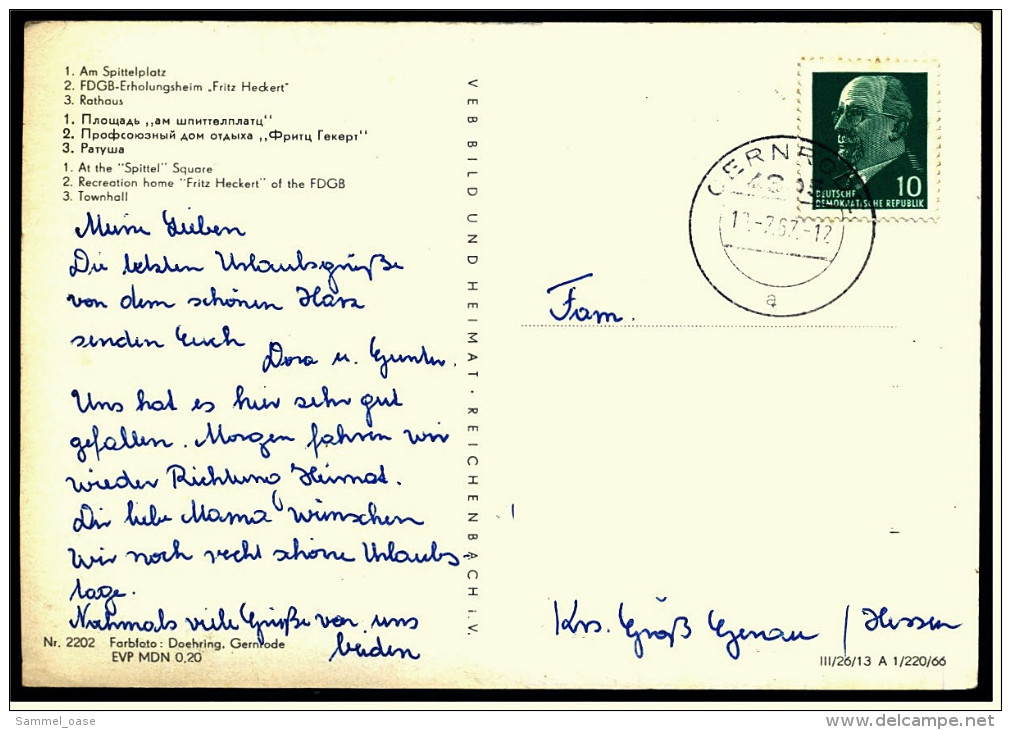 1. Am Spittelplatz
2. FDGB-Erholungsheim „Fritz Heckert"
3. Rathaus
1. Площадь ,,ам шпиттелплатц"
2. Профсоюзный дом отдыха ,,Фритц Гекерт"
3. Ратуша
1. At the "Spittel" Square
2. Recreation home "Fritz Heckert" of the FDGB
3. Townhall
Meine Lieben
Die letzten Urlaubsgrüße
von dem schönen Harz
senden Euch
Dora u. Gunter.
Uns hat es hier sehr gut
gefallen. Morgen fahren wir
wieder Richtung Heimat.
Dir liebe Mama wünschen
wir noch recht schöne Urlaubs-
tage.
Nochmals viele Grüße von uns
beiden
Nr. 2202 Farbfoto: Doehring, Gernrode
EVP MDN 0,20
VEB BILD UND HEIMAT · REICHENBACH i. V.
GERNRODE
67.-12
a
10
DEUTSCHE
DEMOKRATISCHE REPUBLIK
Fam.
Krs. Groß Gerau / Hessen
III/26/13 A 1/220/66
Sammel_oase
delcampe.net